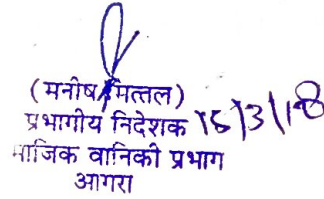 (मनीष मित्तल)
प्रभागीय निदेशक 15/3/18
माजिक वानिकी प्रभाग
आगरा